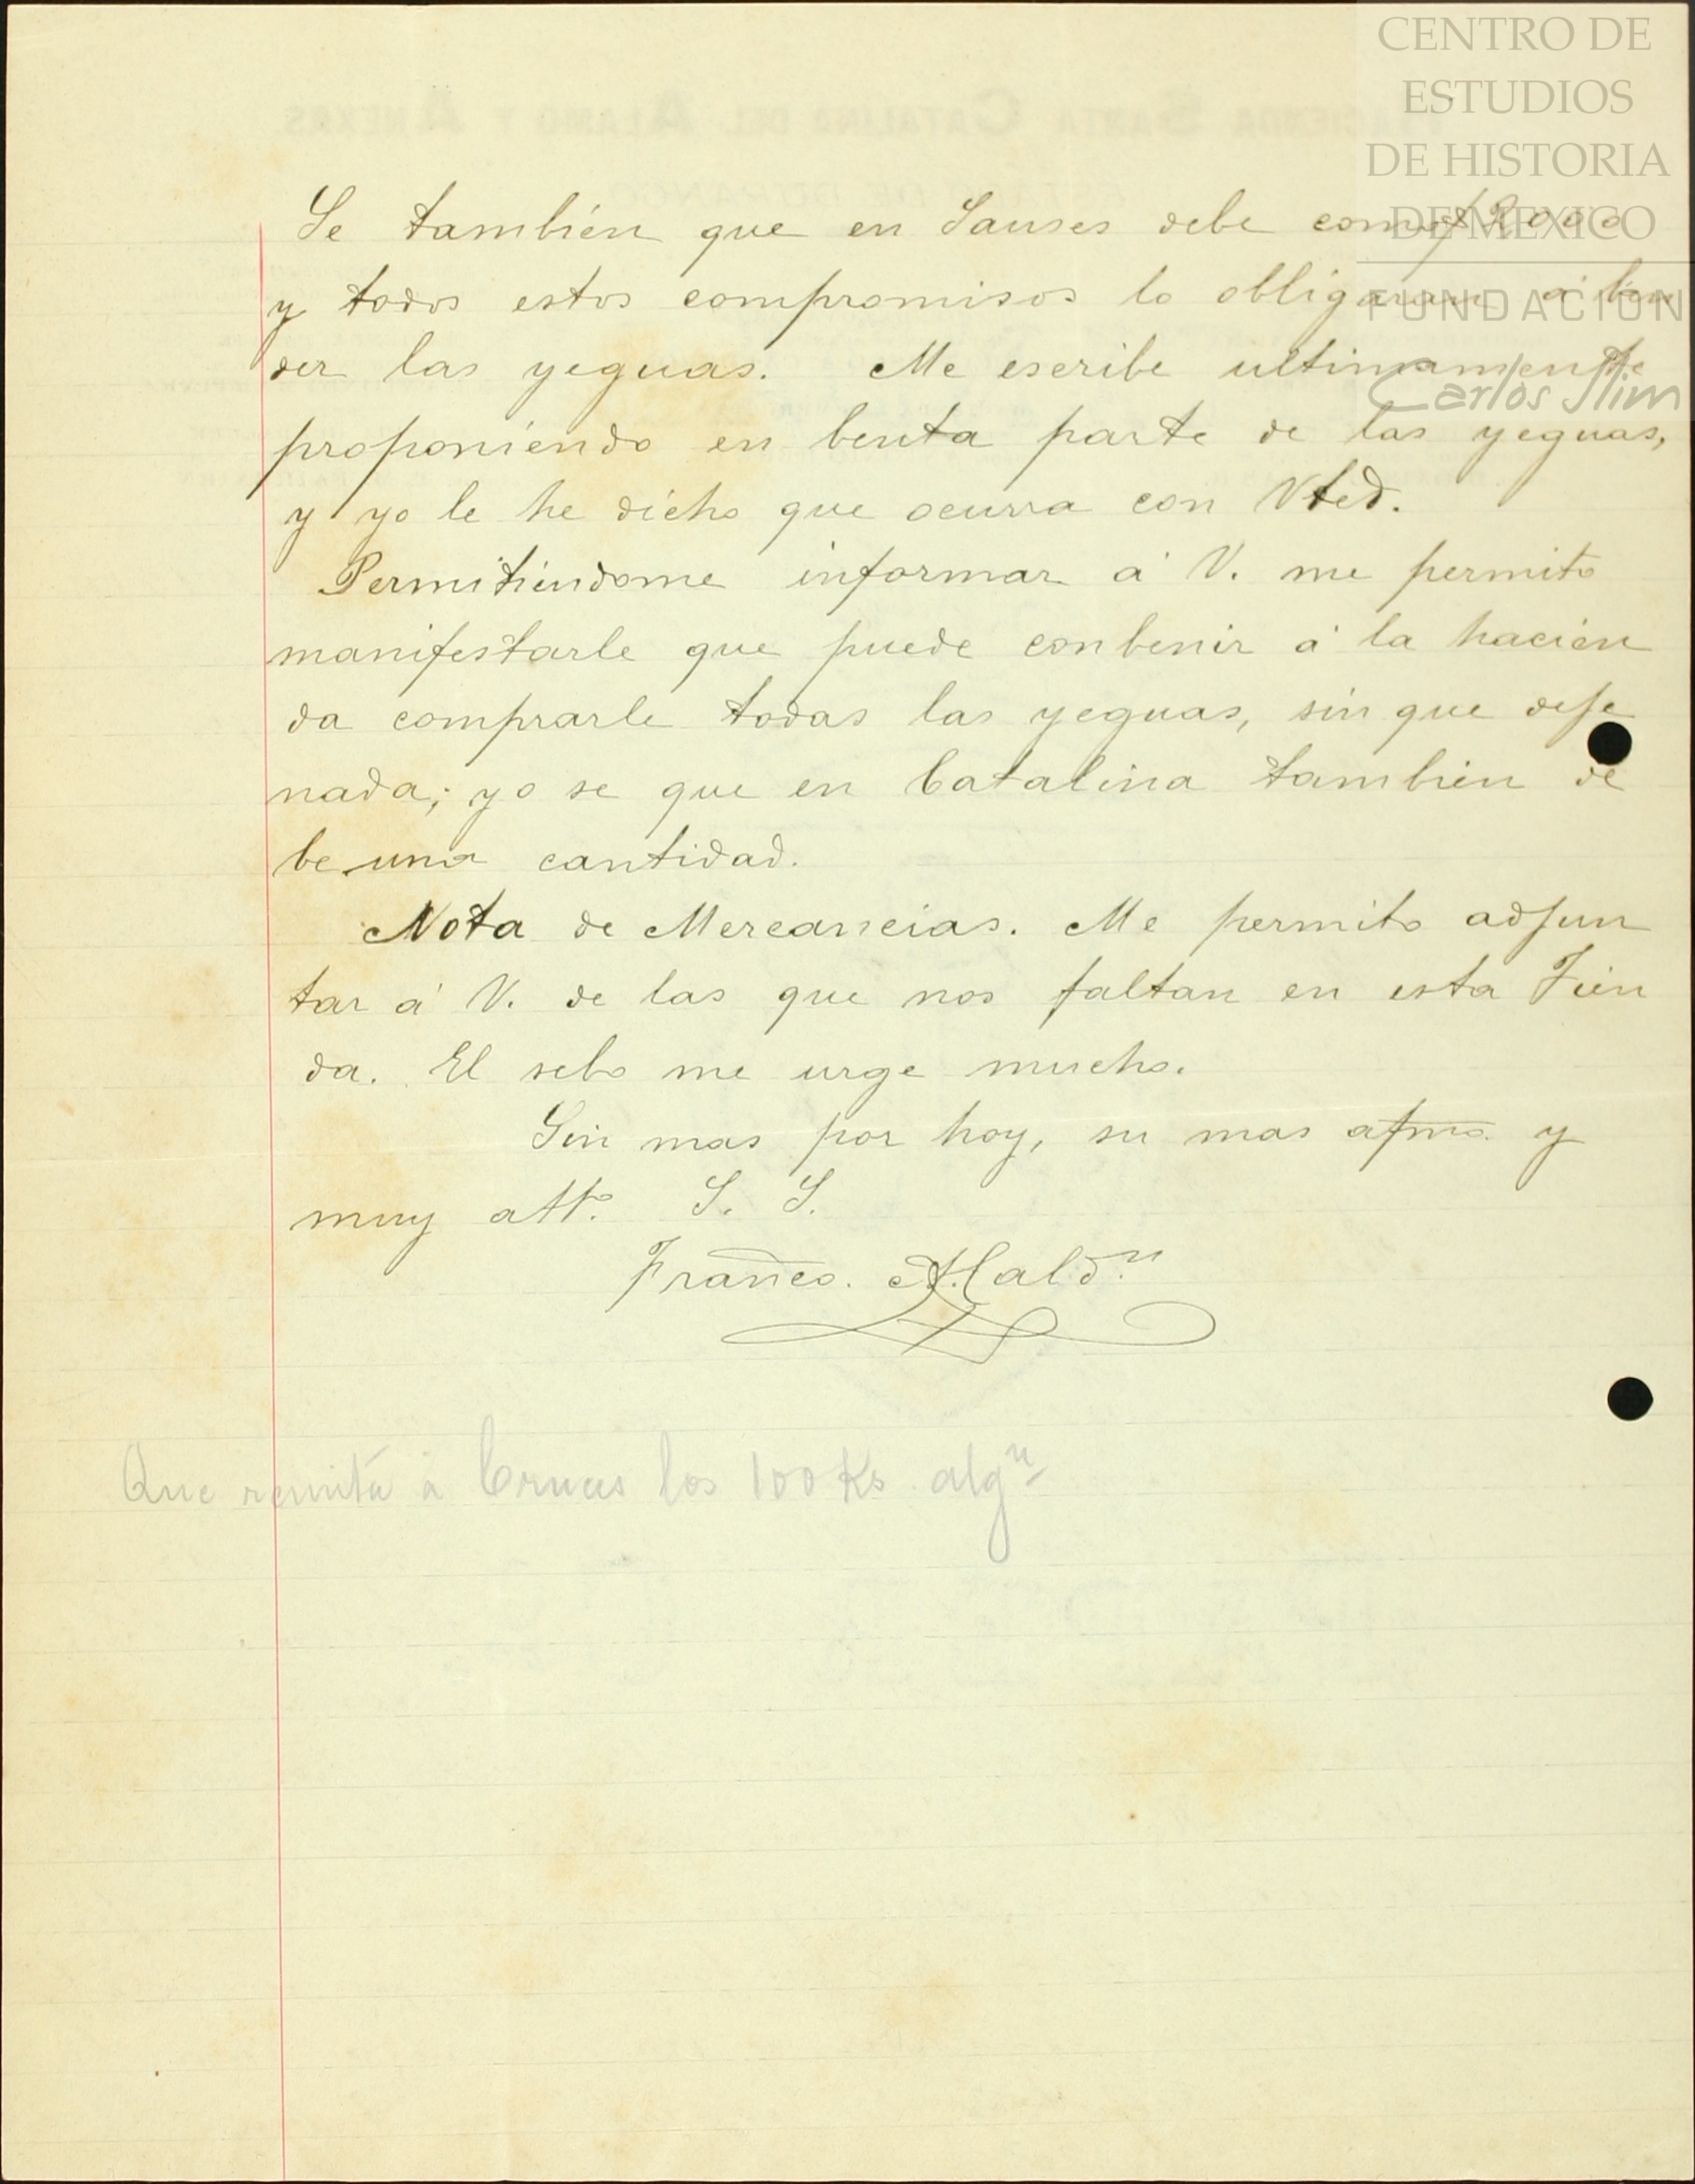 CENTRO DE
ESTUDIOS
DE HISTORIA
DE MEXICO
FUNDACIÓN
Carlos Slim
HACIENDA SANTA CATALINA DEL ALAMO Y ANEXAS
Se también que en Sauses debe como $2000
y todos estos compromisos lo obligaran á ben
der las yeguas. Me escribe ultimamente
proponiendo en benta parte de las yeguas,
y yo le he dicho que ocurra con Vted.
Permitiendome informar á V. me permito
manifestarle que puede conbenir á la hacien
da comprarle todas las yeguas, sin que deje
nada; yo se que en Catalina tambien de
be una cantidad.
Nota de Mercancias. Me permito adjun
tar á V. de las que nos faltan en esta Tien
da. El sebo me urge mucho.
Sin mas por hoy, su mas afmo. y
muy atto. S. S.
Franco. Maldn.
Que remita á Cruces los 100 Ks. algn